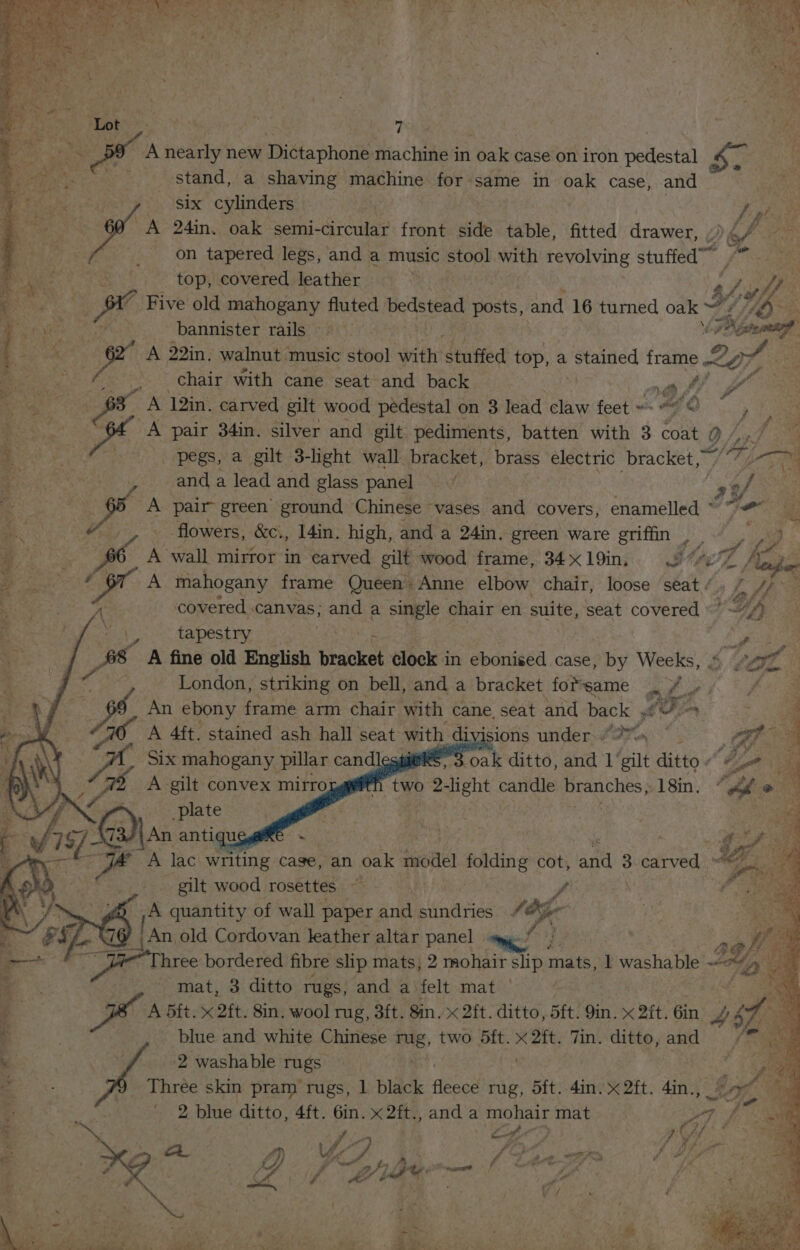 Lot 7
59 A nearly new Dictaphone machine in oak case on iron pedestal
stand, a shaving machine for same in oak case, and
six cylinders
60 A 24in. oak semi-circular front side table, fitted drawer,
on tapered legs, and a music stool with revolving stuffed
top, covered leather
61 Five old mahogany fluted bedstead posts, and 16 turned oak
bannister rails
62 A 22in. walnut music stool with stuffed top, a stained frame
chair with cane seat and back
63 A 12in. carved gilt wood pedestal on 3 lead claw feet
64 A pair 34in. silver and gilt pediments, batten with 3 coat
pegs, a gilt 3-light wall bracket, brass electric bracket,
and a lead and glass panel
65 A pair green ground Chinese vases and covers, enamelled
flowers, &c., 14in. high, and a 24in. green ware griffin
66 A wall mirror in carved gilt wood frame, 34 x 19in.
67 A mahogany frame Queen Anne elbow chair, loose seat
covered canvas, and a single chair en suite, seat covered
tapestry
68 A fine old English bracket clock in ebonised case, by Weeks,
London, striking on bell, and a bracket for same
69 An ebony frame arm chair with cane seat and back
70 A 4ft. stained ash hall seat with divisions under
71 Six mahogany pillar 3 oak ditto, and 1 gilt ditto
72 A gilt convex two 2-light candle branches, 18in.
plate
73 An
74 A lac writing case, an oak model folding cot, and 3 carved
gilt wood rosettes
75 A quantity of wall paper and sundries
76 An old Cordovan leather altar panel
77 Three bordered fibre slip mats, 2 mohair slip mats, 1 washable
mat, 3 ditto rugs, and a felt mat
78 A 5ft. x 2ft. 8in. wool rug, 3ft. 8in. x 2ft. ditto, 5ft. 9in. x 2ft. 6in
blue and white Chinese rug, two 5ft. x 2ft. 7in. ditto, and
2 washable rugs
79 Three skin pram rugs, 1 black fleece rug, 5ft. 4in. x 2ft. 4in.,
2 blue ditto, 4ft. 6in. x 2ft., and a mohair mat